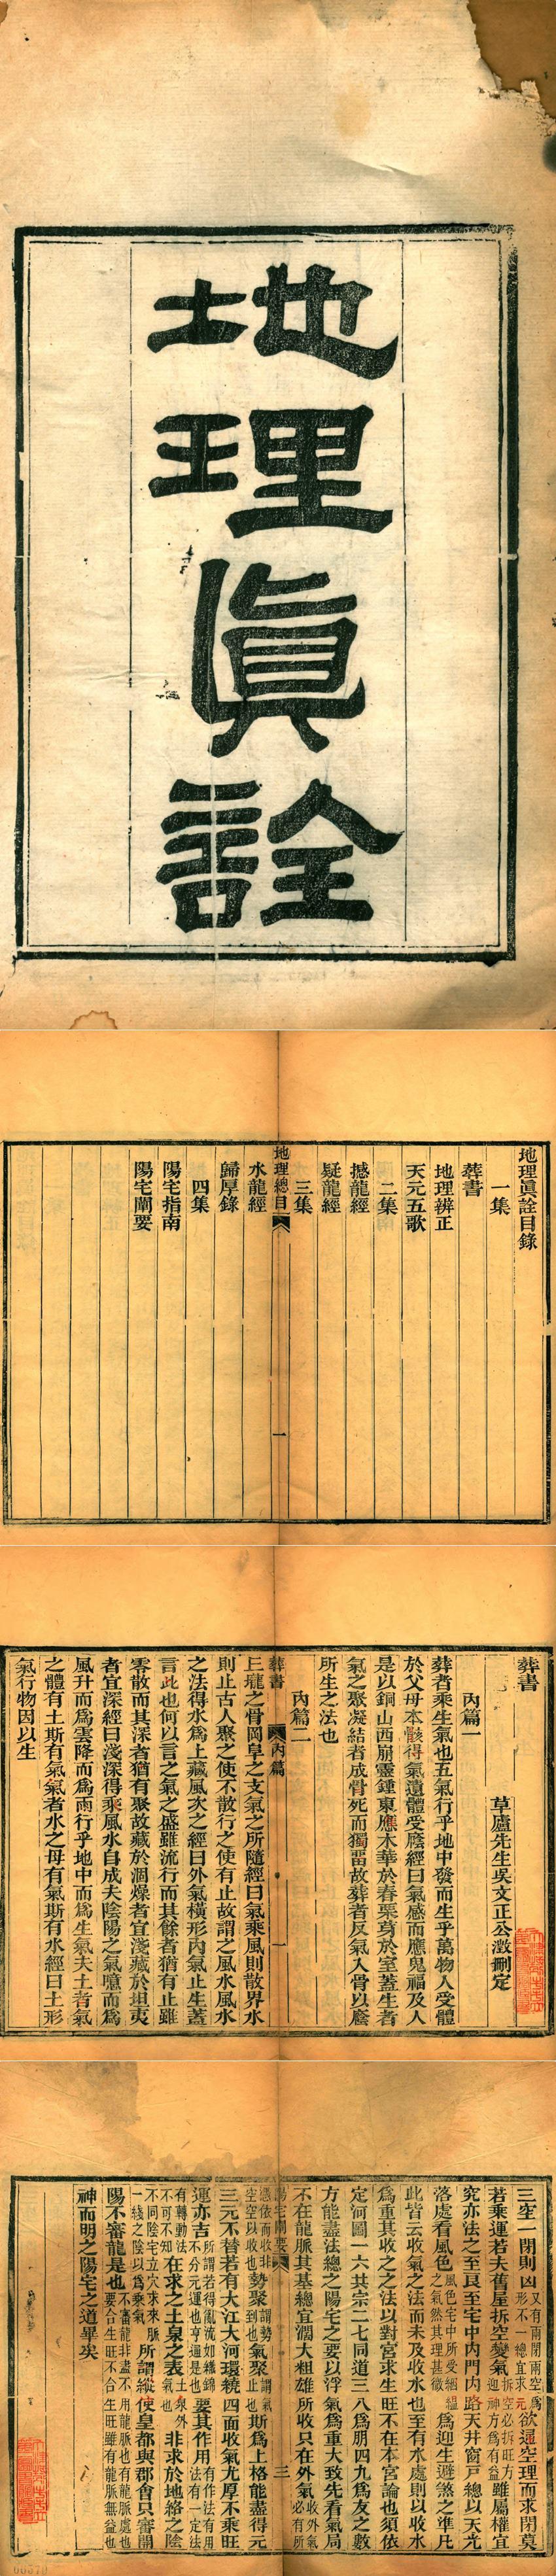 地理眞詮
地理眞詮目錄
一集
葬書
地理辨正
天元五歌
二集
撼龍經
疑龍經
三集
地理總目
一
水龍經
歸厚錄
四集
陽宅指南
陽宅闡要
葬書
草廬先生吳文正公澂刪定
內篇一
葬者乘生氣也五氣行乎地中發而生乎萬物人受體
於父母本骸得氣遺體受廕經曰氣感而應鬼福及人
是以銅山西崩靈鍾東應木華於春栗芽於室蓋生者
氣之聚凝結者成骨死而獨畱故葬者反氣入骨以廕
所生之法也
內篇二
葬書
內篇
一
上壠之骨岡阜之支氣之所隨經曰氣乘風則散界水
則止古人聚之使不散行之使有止故謂之風水風水
之法得水爲上藏風次之經曰外氣橫形內氣止生蓋
言此也何以言之氣之盛雖流行而其餘者猶有止雖
零散而其深者猶有聚故藏於涸燥者宜淺藏於坦夷
者宜深經曰淺深得乘風水自成夫陰陽之氣噫而爲
風升而爲雲降而爲雨行乎地中而爲生氣夫土者氣
之體有土斯有氣氣者水之母有氣斯有水經曰土形
氣行物因以生
三空一閉則凶又有兩閉兩空爲形不一總宜求元欲通空理而求閉莫
若乘運若夫舊屋拆空變氣拆空必拆旺方迎神方爲有益雖屬權宜
究亦法之至良至宅中內門內路天井窗戶總以天光
落處看風色風色宅中所受絪縕之氣然其理甚微爲迎生避煞之準凡
此皆云收氣之法而未及收水也至有水處則以收水
爲重其收之之法以對宮求生旺不在本宮論也須依
定河圖一六共宗二七同道三八爲朋四九爲友之數
方能盡法總之陽宅之要以浮氣爲重大致先看氣局
不在龍脈其基總宜濶大粗雄所收只在外氣收外氣必有所
陽宅闡要
三
憑依而收非空空以收也勢聚謂勢到也氣聚謂氣止也斯爲上格能盡得元
三元不替若有大江大河環繞四面收氣尤厚不乘旺
運亦吉所謂若得亂流如織錦不分元運也亨通是也要其作用有作法有用法有一定法
有轉動法不可不知在求之土泉之表土泉外氣也非求於地絡之陰
不同陰宅立穴求來脈一綫之陰以爲乘氣所謂縱使皇都與郡會只審開
陽不審龍是也不審龍非盡不用龍脈也有龍脈處也要合生旺不合生旺雖有龍脈無益也
神而明之陽宅之道畢矣